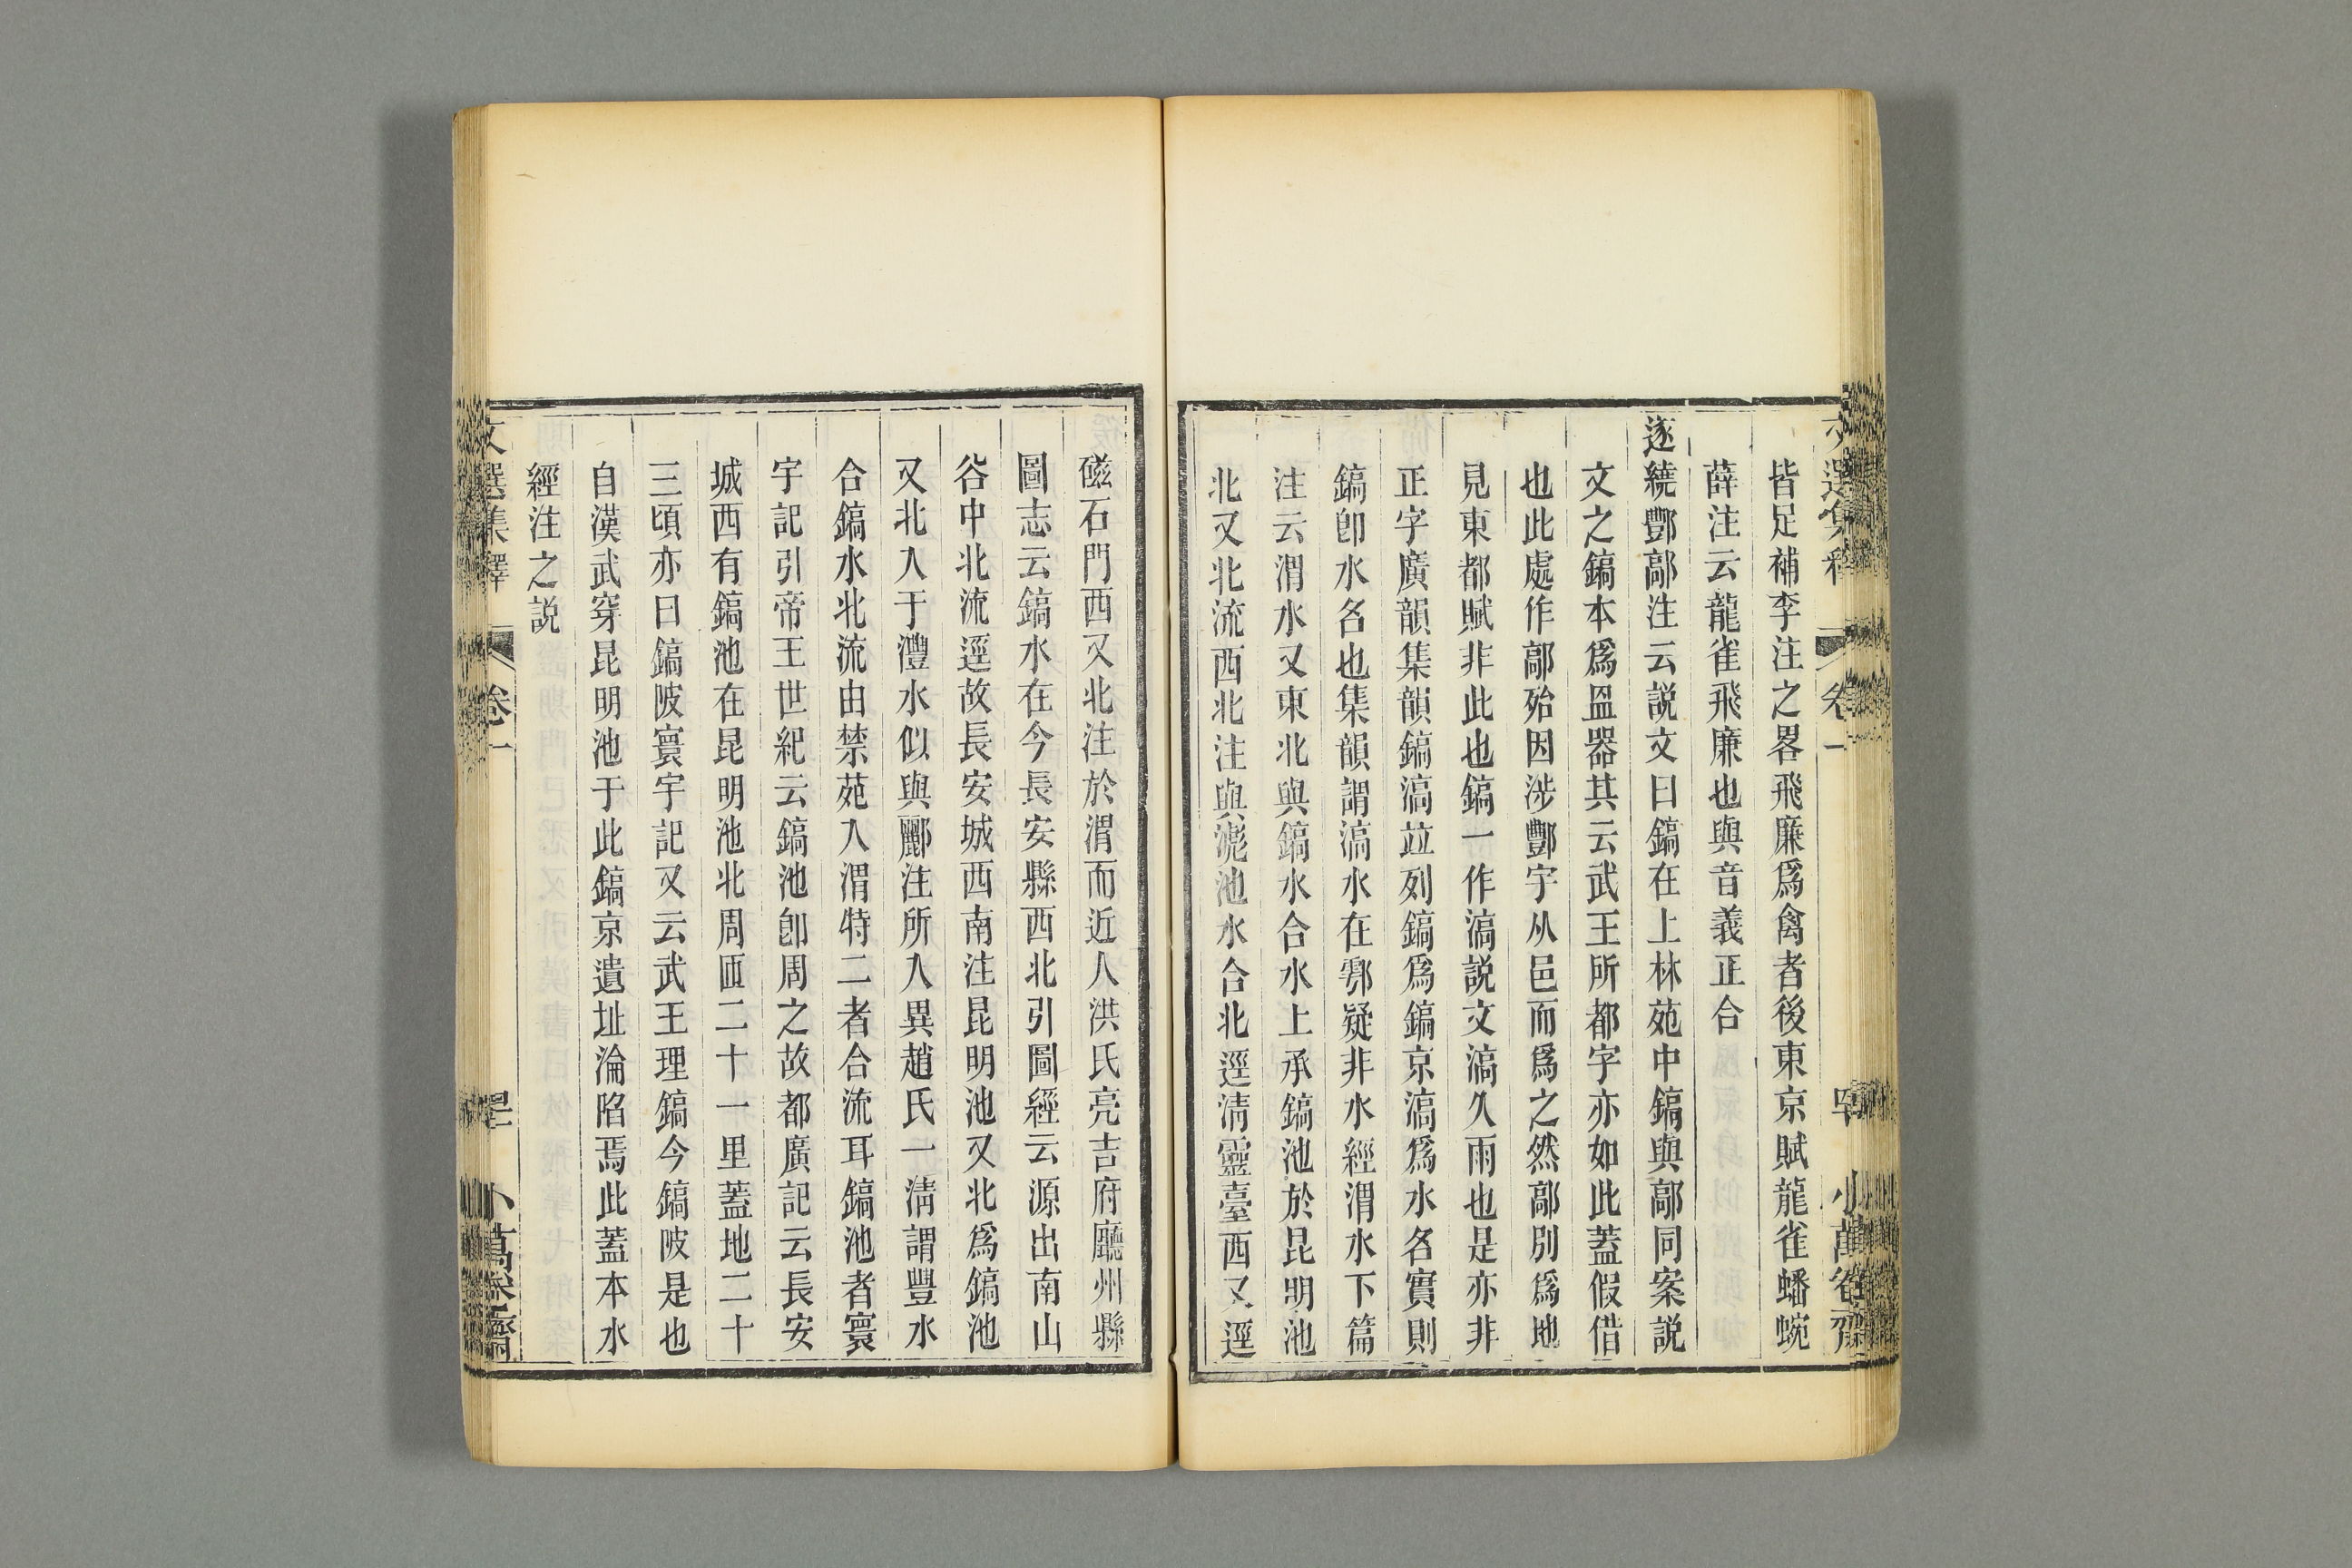 皆足補李注之畧飛廉爲禽者後東京賦龍雀蟠蜿
薛注云龍雀飛廉也與音義正合
遂繞酆鄗注云説文曰鎬在上林苑中鎬與鄗同案説
文之鎬本爲𥁕器其云武王所都字亦如此蓋假借
也此處作鄗殆因涉酆字从邑而爲之然鄗別爲地
見東都賦非此也鎬一作滈説文滈久雨也是亦非
正字廣韻集韻鎬滈竝列鎬爲鎬京滈爲水名實則
鎬卽水名也集韻謂滈水在鄠疑非水經渭水下篇
注云渭水又東北與鎬水合水上承鎬池於昆明池
北又北流西北注與滮池水合北逕淸靈臺西又逕
磁石門西又北注於渭而近人洪氏亮吉府廳州縣
圖志云鎬水在今長安縣西北引圖經云源出南山
谷中北流逕故長安城西南注昆明池又北爲鎬池
又北入于灃水似與酈注所入異趙氏一淸謂豐水
合鎬水北流由禁苑入渭特二者合流耳鎬池者寰
宇記引帝王世紀云鎬池卽周之故都廣記云長安
城西有鎬池在昆明池北周匝二十一里蓋地二十
三頃亦曰鎬陂寰宇記又云武王理鎬今鎬陂是也
自漢武穿昆明池于此鎬京遺址淪陷焉此蓋本水
經注之説
文選集釋
卷一
小萬卷齋